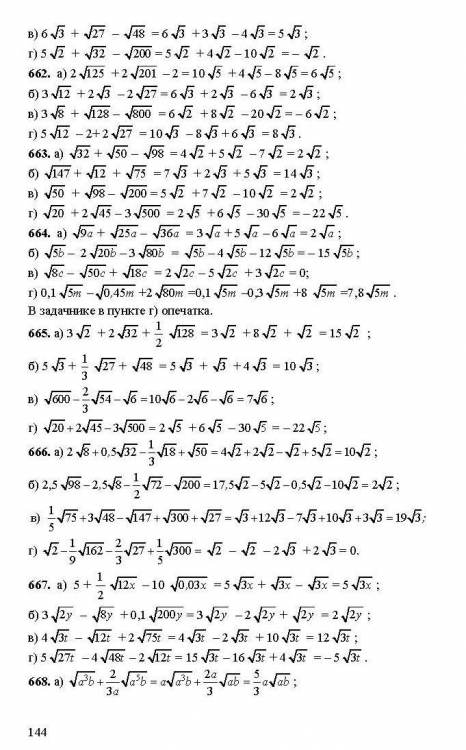 в) 6√3 + √27 − √48 = 6√3 + 3√3 − 4√3 = 5√3 ;
г) 5√2 + √32 − √200 = 5√2 + 4√2 − 10√2 = − √2 .
662. а) 2√125 + 2√201 − 2 = 10√5 + 4√5 − 8√5 = 6√5 ;
б) 3√12 + 2√3 − 2√27 = 6√3 + 2√3 − 6√3 = 2√3 ;
в) 3√8 + √128 − √800 = 6√2 + 8√2 − 20√2 = − 6√2 ;
г) 5√12 − 2+2√27 = 10√3 − 8√3 + 6√3 = 8√3 .
663. а) √32 + √50 − √98 = 4√2 + 5√2 − 7√2 = 2√2 ;
б) √147 + √12 + √75 = 7√3 + 2√3 + 5√3 = 14√3 ;
в) √50 + √98 − √200 = 5√2 + 7√2 − 10√2 = 2√2 ;
г) √20 + 2√45 − 3√500 = 2√5 + 6√5 − 30√5 = − 22√5 .
664. а) √9a + √25a − √36a = 3√a + 5√a − 6√a = 2√a ;
б) √5b − 2√20b − 3√80b = √5b − 4√5b − 12√5b = − 15√5b ;
в) √8c − √50c + √18c = 2√2c − 5√2c + 3√2c = 0;
г) 0,1√5m − √0,45m + 2√80m = 0,1√5m − 0,3√5m + 8√5m = 7,8√5m .
В задачнике в пункте г) опечатка.
665. а) 3√2 + 2√32 + 1/2 √128 = 3√2 + 8√2 + √2 = 15√2 ;
б) 5√3 + 1/3 √27 + √48 = 5√3 + √3 + 4√3 = 10√3 ;
в) √600 − 2/3 √54 − √6 = 10√6 − 2√6 − √6 = 7√6 ;
г) √20 + 2√45 − 3√500 = 2√5 + 6√5 − 30√5 = − 22√5 ;
666. а) 2√8 + 0,5√32 − 1/3 √18 + √50 = 4√2 + 2√2 − √2 + 5√2 = 10√2 ;
б) 2,5√98 − 2,5√8 − 1/2 √72 − √200 = 17,5√2 − 5√2 − 0,5√2 − 10√2 = 2√2 ;
в) 1/5 √75 + 3√48 − √147 + √300 + √27 = √3 + 12√3 − 7√3 + 10√3 + 3√3 = 19√3;
г) √2 − 1/9 √162 − 2/3 √27 + 1/5 √300 = √2 − √2 − 2√3 + 2√3 = 0.
667. а) 5 + 1/2 √12x − 10 √0,03x = 5√3x + √3x − √3x = 5√3x ;
б) 3√2y − √8y + 0,1√200y = 3√2y − 2√2y + √2y = 2√2y ;
в) 4√3t − √12t + 2√75t = 4√3t − 2√3t + 10√3t = 12√3t ;
г) 5√27t − 4√48t − 2√12t = 15√3t − 16√3t + 4√3t = − 5√3t .
668. а) √a³b + 2/3a √a⁵b = a√a³b + 2a/3 √ab = 5/3 a√ab ;
144